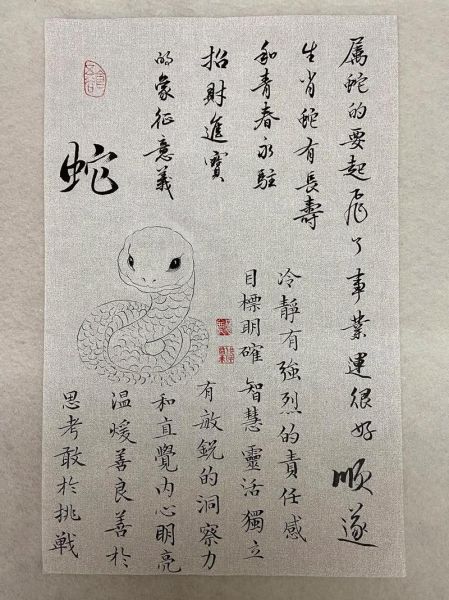 属蛇的要起飛了事業運很好順遂
生肖蛇有長壽
和青春永駐
招財進寶
的象征意義
蛇
冷靜有強烈的責任感
目標明確智慧靈活獨立
有敏鋭的洞察力
和直覺內心明亮
温煖善良善於
思考敢於挑戦